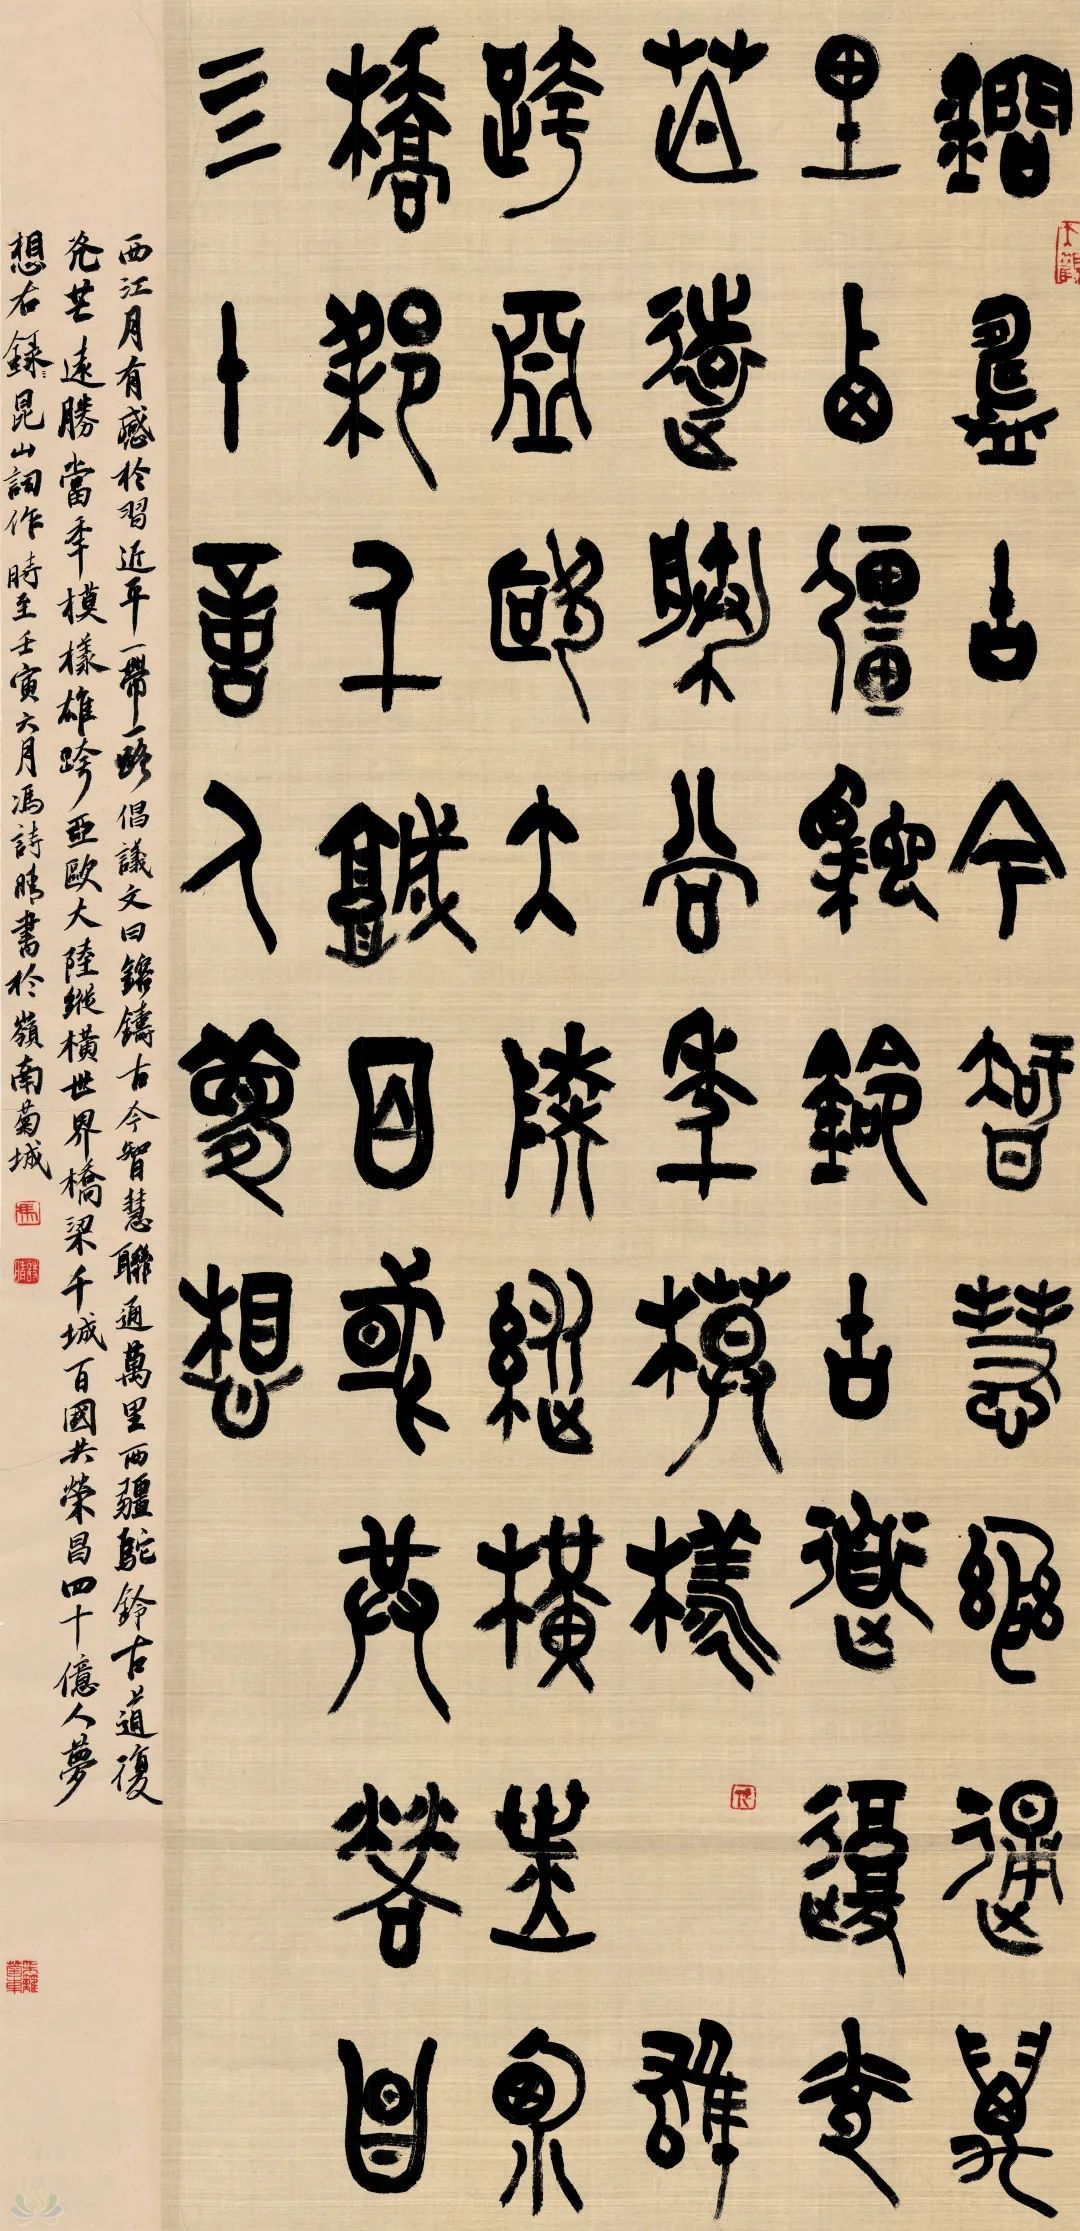 鎔鑄古今智慧聯通萬
里西疆駝鈴古道復光
芒遠勝當年模樣雄
跨亞歐大陸縱橫世界
橋梁千城百國共榮昌
四十億人夢想
西江月有感於習近平一帶一路倡議文曰鎔鑄古今智慧聯通萬里西疆駝鈴古道復
光芒遠勝當年模樣雄跨亞歐大陸縱橫世界橋梁千城百國共榮昌四十億人夢
想右錄昆山詞作時至壬寅六月馮詩晴書於嶺南菊城